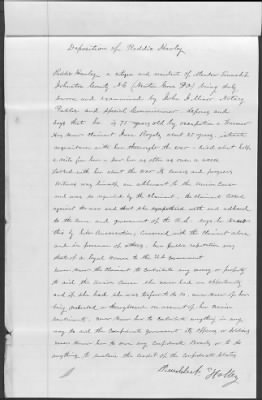 Deposition of Reddic Hawley
Reddic Hawley a citizen and resident of Meadow Township
Johnston County N.C (Newton Grove P.O) being duly
sworn and examined by John A. Moore Notary
Public and Special Commissioner deposes and
says that he is 75 years old by occupation a Farmer
Has known claimant Jane Royals about 25 years, intimate
acquaintance with her throughout the war - lived about half
a mile from her - saw her as often as once a week
talked with her about the war its causes and progress
Witness was himself an adherent to the Union Cause
and was so regarded by the Claimant. The Claimant talked
against the war and that she sympathized with and adhered
to the cause and government of the U.S. says he knows
this by her conversation, Conversed with the Claimant alone
and in presence of others. her public reputation was
that of a loyal woman to the U.S Government
never knew the Claimant to contribute any money or property
to aid the Union Cause she never had an opportunity
and if she had she was too poor to do so. never knew of her
being molested or threatened on account of her Union
sentiments. never knew her to contribute anything in any
way to aid the Confederate government its officers or soldiers
never knew her to own any Confederate Bonds or to do
anything to sustain the credit of the Confederate States